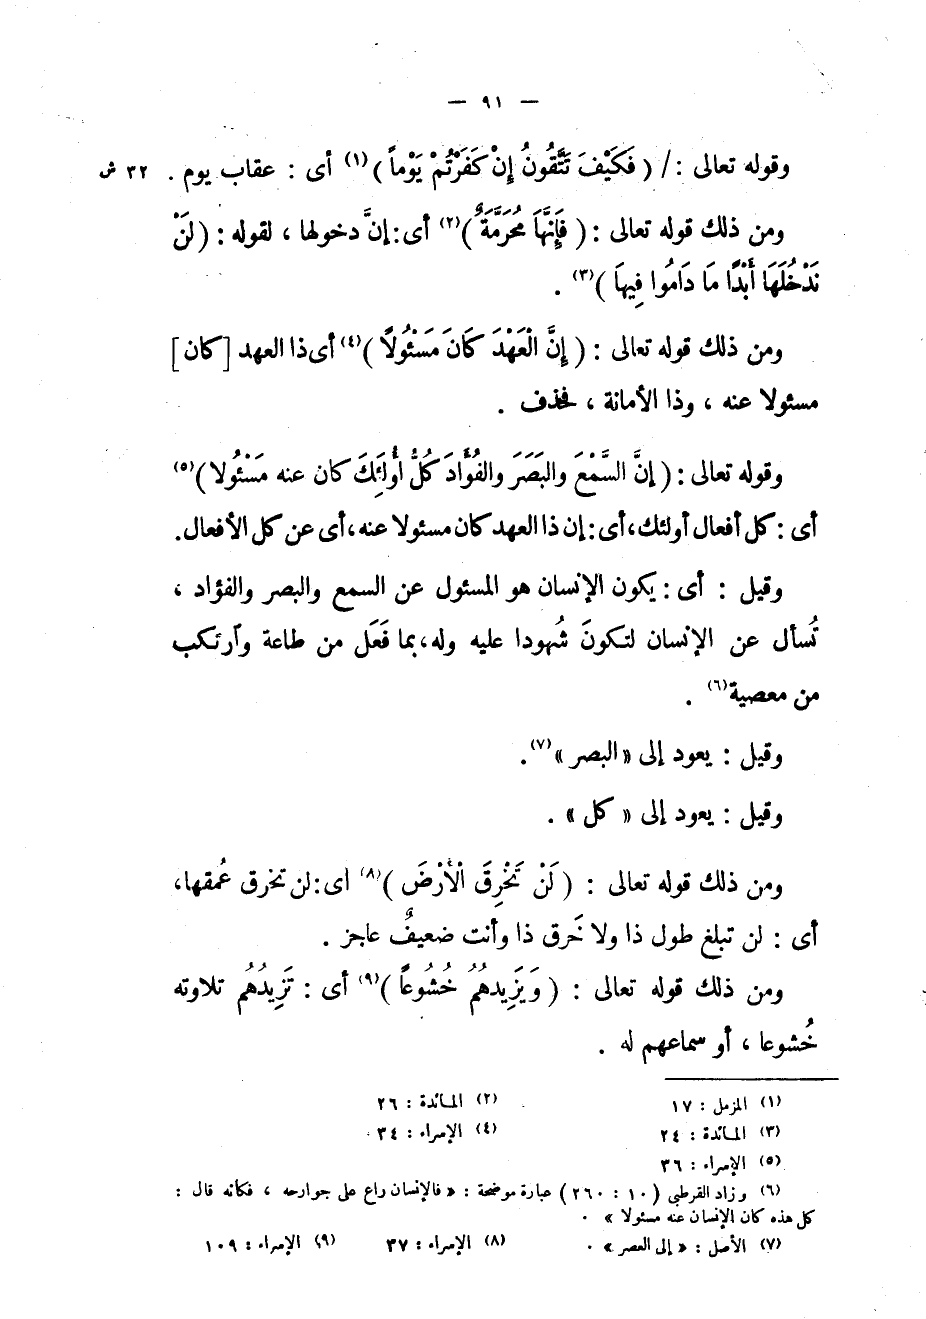 — ٩١ —
وقوله تعالى : / ( فَكَيْفَ تَتَّقُونُ إِنْ كَفَرْتُمْ يَوْماً )(١) أى : عقاب يوم . ٣٢ ش
ومن ذلك قوله تعالى : ( فَإِنَّهَا مُحَرَّمَةٌ )(٢) أى : إنَّ دخولها ، لقوله : ( لَنْ
نَدْخُلَهَا أَبَدًا مَا دَامُوا فِيهَا )(٣) .
ومن ذلك قوله تعالى : ( إِنَّ الْعَهْدَ كَانَ مَسْئُولًا )(٤) أى ذا العهد [ كان ]
مسئولا عنه ، وذا الأمانة ، فحذف .
وقوله تعالى : ( إِنَّ السَّمْعَ والبَصَرَ والفُؤَادَ كُلُّ أُولَئِكَ كان عنه مَسْئُولا )(٥)
أى : كل أفعال أولئك ، أى : إن ذا العهد كان مسئولا عنه ، أى عن كل الأفعال .
وقيل : أى : يكون الإنسان هو المسئول عن السمع والبصر والفؤاد ،
تُسأل عن الإنسان لتكونَ شُهودا عليه وله ، بما فَعَل من طاعة وآرتكب
من معصية(٦) .
وقيل : يعود إلى « البصر »(٧) .
وقيل : يعود إلى « كل » .
ومن ذلك قوله تعالى : ( لَنْ تَخْرِقَ الْأَرْضَ )(٨) اى : لن تخرق عُمقها ،
أى : لن تبلغ طول ذا ولا خَرق ذا وأنت ضعيفٌ عاجز .
ومن ذلك قوله تعالى : ( وَيَزِيدُهُمُ خُشُوعاً )(٩) أى : تَزِيدُهُم تلاوته
خُشوعا ، أو سماعهم له .
(١) المزمل : ١٧ (٢) المائدة : ٢٦
(٣) المائدة : ٢٤ (٤) الإسراء : ٣٤
(٥) الإسراء : ٣٦
(٦) وزاد القرطبى ( ١٠ : ٢٦٠ ) عبارة موضحة : « فالإنسان راع على جوارحه ، فكأنه قال :
كل هذه كان الإنسان عنه مسئولا » .
(٧) الأصل : « إلى العصر » . (٨) الإسراء : ٣٧ (٩) الإسراء : ١٠٩